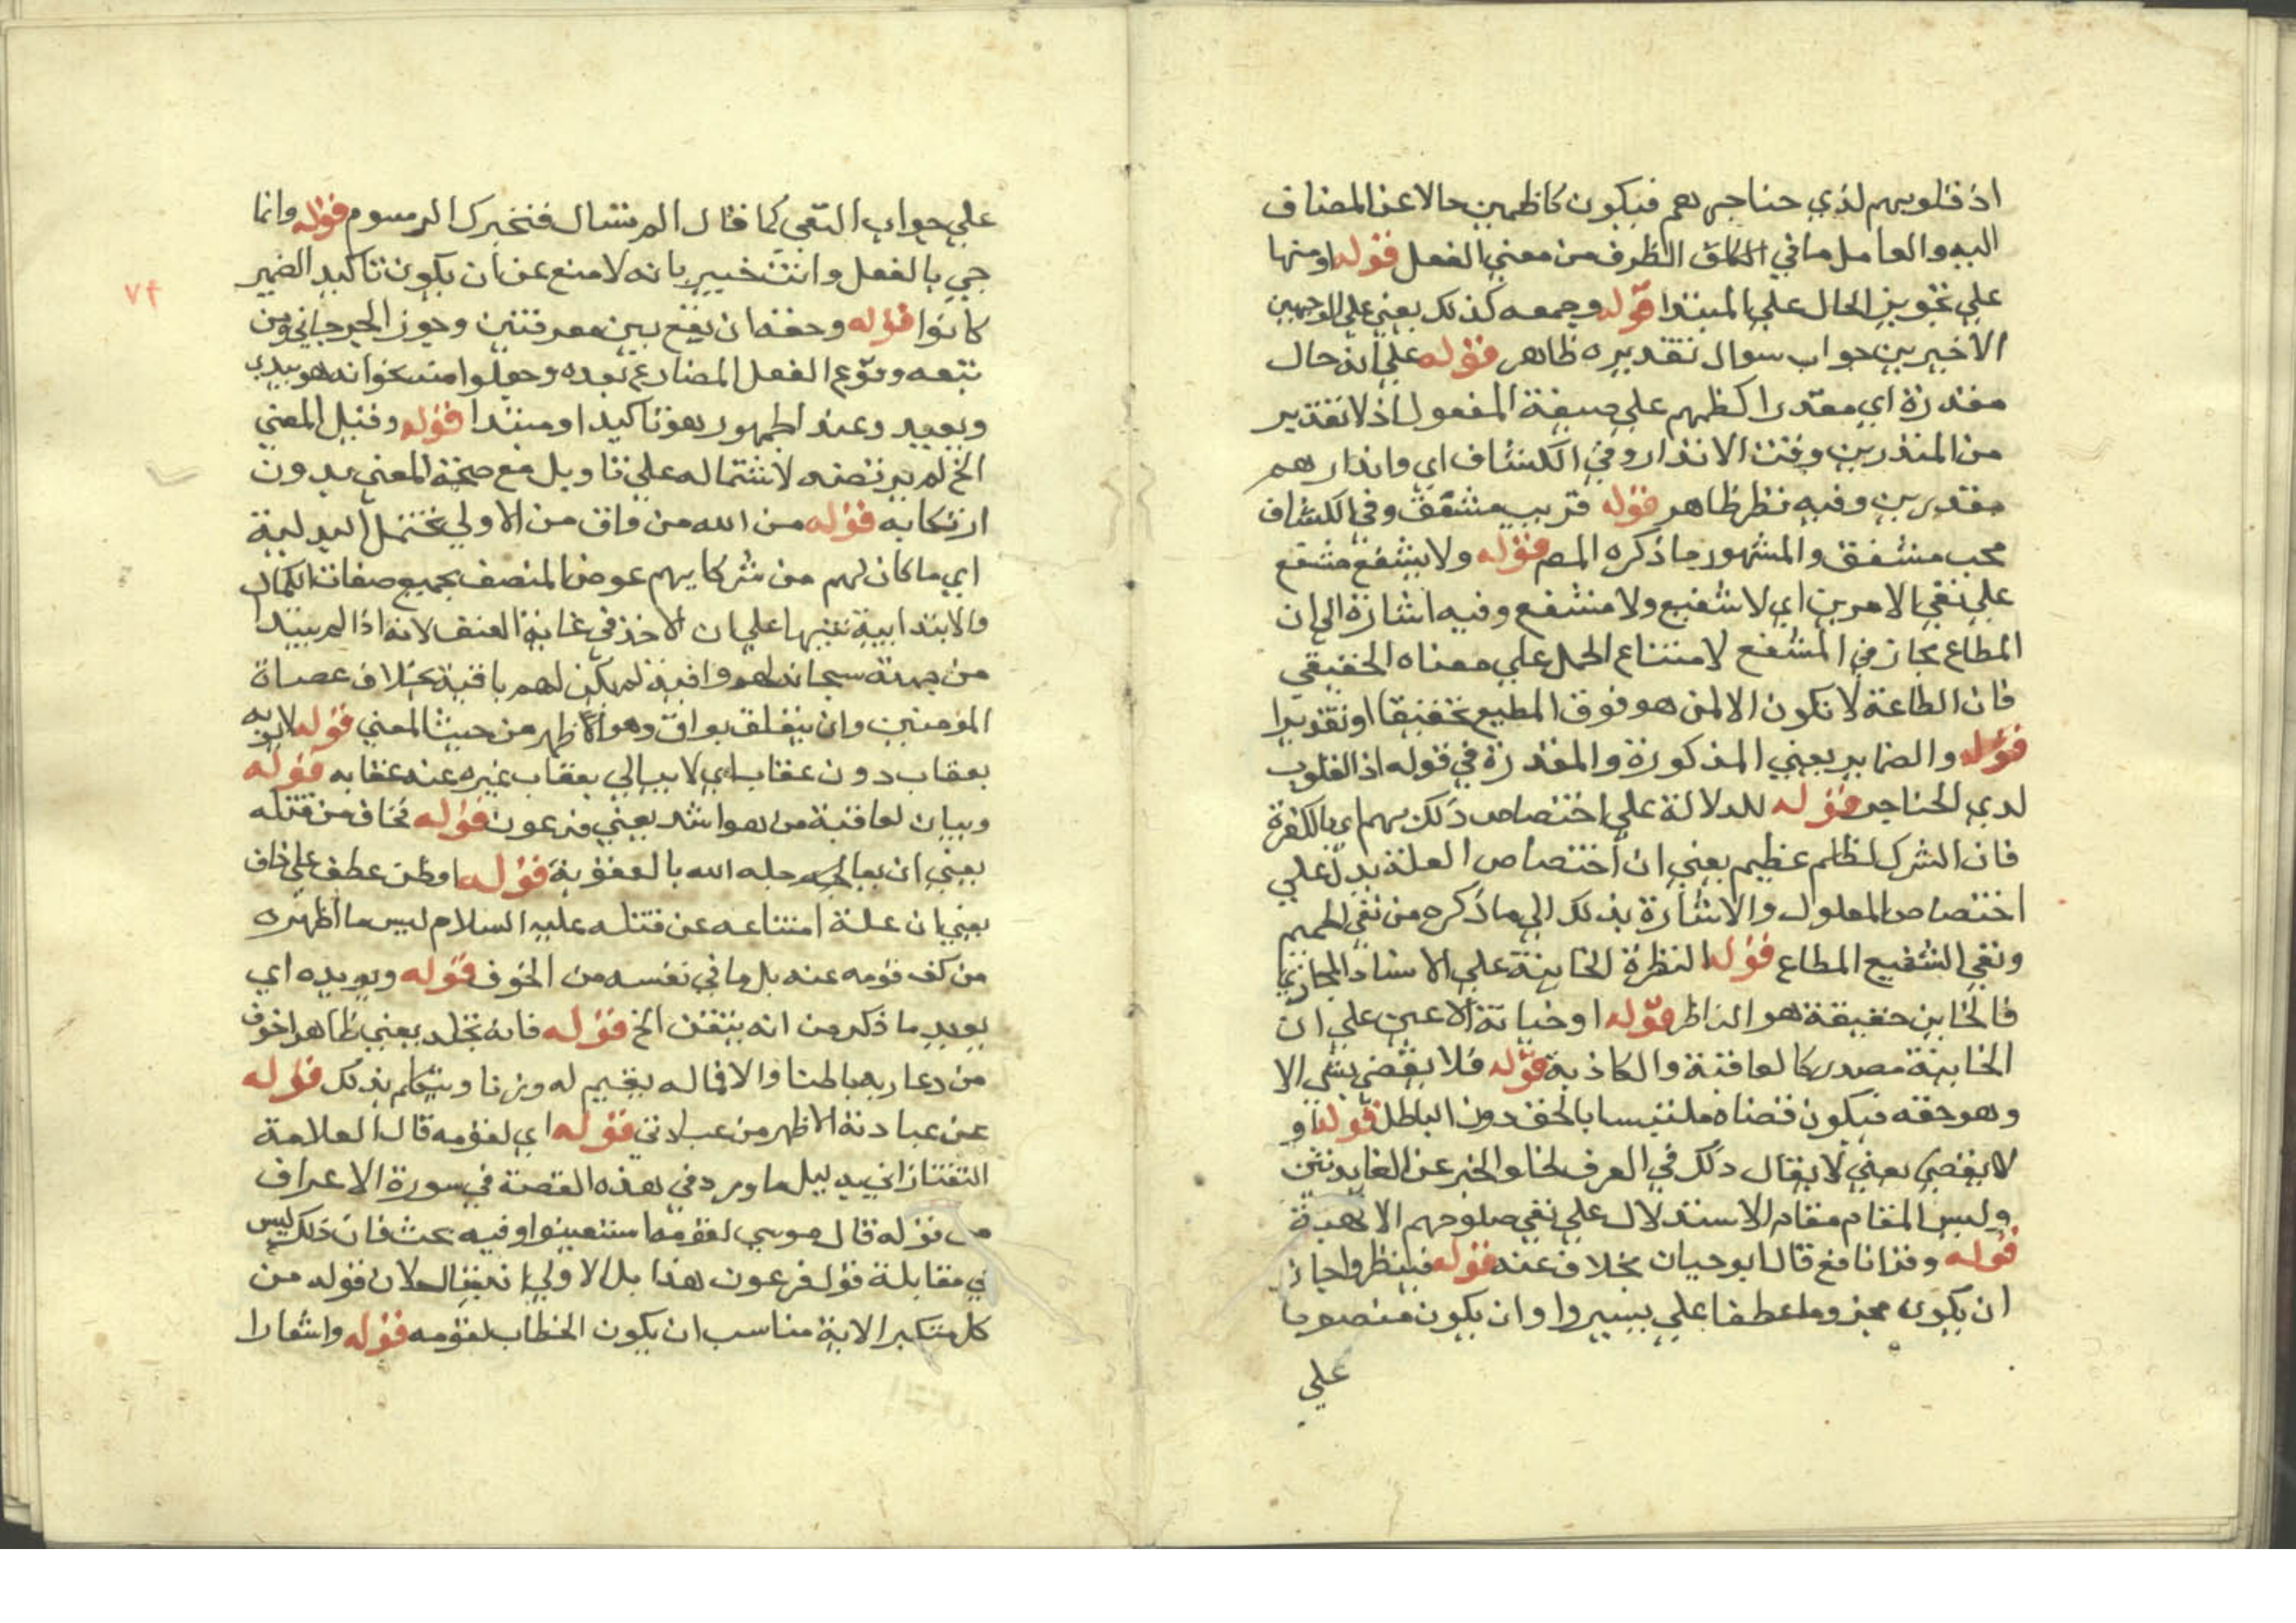 اذ قلوبهم لذي حناجرهم فيكون كاظمين حالا عن المضاف
اليه والعامل ما في الظرف من معني الفعل قوله او منها
علي تجويز الحال علي المبتدا قوله وجمعه كذلك يعني علي الوجهين
الاخيرين جواب سوال تقديره ظاهر قوله علي انه حال
مقدرة اي مقدرا كظمهم علي صيغة المفعول اذ لا تقدير
من المنذرين وقت الانذار وفي الكشاف اي وانذارهم
مقدرين وفيه نظر ظاهر قوله قريب مشفق وفي الكشاف
محب مشفق والمشهور ما ذكره المص قوله ولا يشفع مشفع
علي نفي الامرين اي لا شفيع ولا مشفع وفيه اشارة الي ان
المطاع مجاز في المشفع لامتناع الحمل علي معناه الحقيقي
فان الطاعة لا تكون الا لمن هو فوق المطيع تحقيقا او تقديرا
قوله والضماير يعني المذكورة والمقدرة في قوله اذ القلوب
لدي الحناجر قوله للدلالة علي اختصاص ذلك بهم اي بالكفرة
فان الشرك لظلم عظيم يعني ان اختصاص العلة يدل علي
اختصاص المعلول والاشارة بذلك الي ما ذكره من نفي الحميم
ونفي الشفيع المطاع قوله النظرة الخاينة علي الاسناد المجازي
فالخاين حقيقة هو الناظر قوله او خيانة الاعين علي ان
الخاينة مصدر كالعافية والكاذبة قوله فلا يقضي بشي الا
وهو حقه فيكون قضاه ملتبسا بالحق دون الباطل قوله او
لا يقضي يعني لا يقال ذلك في العرف لخلو الخبر عن الفايدتين
وليس المقام مقام الاستدلال علي نفي صلوحهم الالهية
قوله وقرا نافع قال ابو حيان بخلاف عنه قوله فينظروا جاز
ان يكون مجزوما عطفا علي يسيروا وان يكون منصوبا
علي
علي جواب النفي كما قال الم تسال فتخبرك الرسوم قوله وانما
جي بالفعل وانت خبير بانه لا منع عن ان يكون تاكيد الضمير
كانوا قوله وحقه ان يقع بين معرفتين وجوز الجرجاني ومن
تبعه وقوع الفعل المضارع بعده وجعلوا منه نحو انه هو يبدي
ويعيد وعند الجمهور هو تاكيد او مبتدا قوله وقيل المعني
الخ لم يرتضه لاشتماله علي تاويل مع صحة المعني بدون
ارتكابه قوله من الله من واق من الاولي تحتمل البدلية
اي ما كان لهم من شركايهم عوض المتصف بجميع صفات الكمال
والابتدايية تنبيها علي ان الاخذ في غاية العنف لانه اذا لم يبتدا
من جهته سبحانه لهم واقية لم يكن لهم باقية بخلاف عصاة
المؤمنين وان يتعلق بواق وهو الاظهر من حيث المعني قوله لا يوبه
بعقاب دون عقابه اي لا يبالي بعقاب غيره عند عقابه قوله
وبيان لعاقبة من هو اشد يعني فرعون قوله تخاف من قتله
يعني ان يعاجله الله بالعقوبة قوله او ظن عطف علي خاف
يعني ان علة امتناعه عن قتله عليه السلام ليس ما اظهره
من كف قومه عنه بل ما في نفسه من الخوف قوله ويويده اي
يويد ما ذكر من انه يتقن الخ قوله فانه تجلد يعني ظاهرا خوف
من دعا ربه باطنا والا فما له يقيم له وزنا ويتكلم بذلك قوله
عن عبادته الاظهر من عبادتي قوله اي لقومه قال العلامة
التفتازاني بدليل ما ورد في هذه القصة في سورة الاعراف
من قوله قال موسي لقومه استعينوا وفيه بحث فان ذلك ليس
في مقابلة قول فرعون هذا بل الاولي ان يقال لان قوله من
كل متكبر الاية مناسب ان يكون الخطاب لقومه قوله واشعارا
٧٤